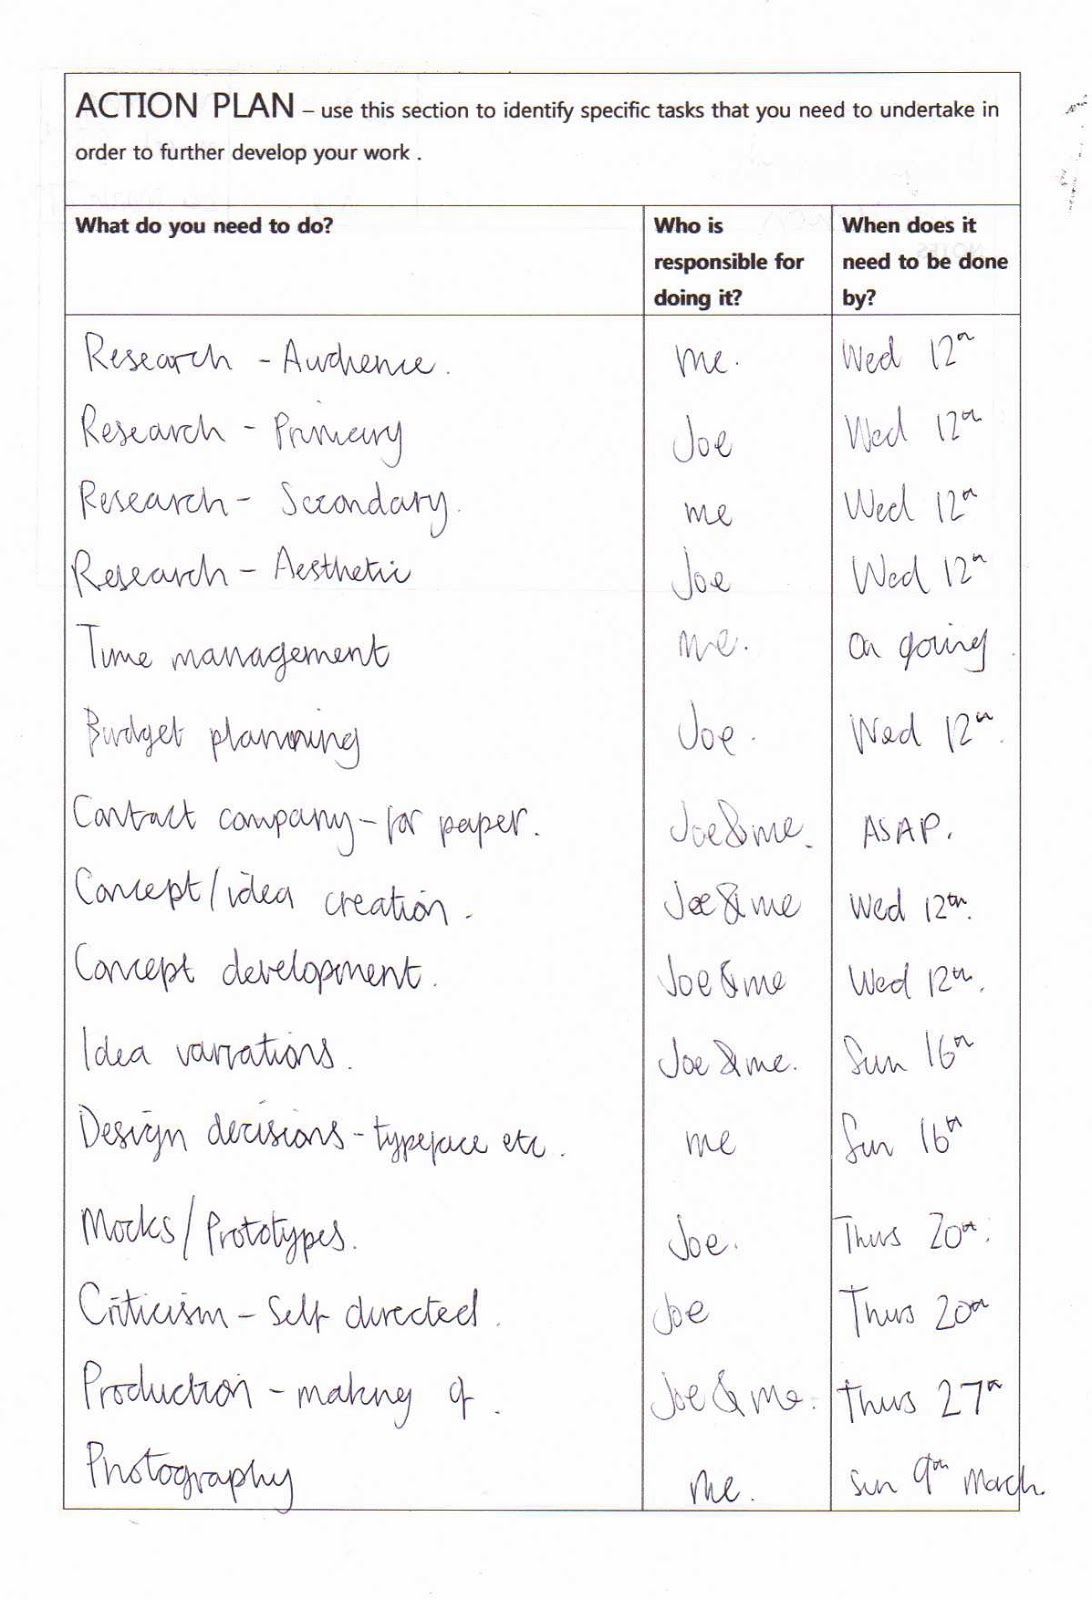 ACTION PLAN – use this section to identify specific tasks that you need to undertake in
order to further develop your work .
What do you need to do? Who is responsible for doing it? When does it need to be done by?
Research - Audience. me. Wed 12th
Research - Primary Joe Wed 12th
Research - Secondary. me Wed 12th
Research - Aesthetic Joe Wed 12th
Time management me. On going.
Budget planning Joe. Wed 12th.
Contact company - for paper. Joe & me. ASAP.
Concept/idea creation. Joe & me Wed 12th.
Concept development. Joe & me Wed 12th.
Idea variations. Joe & me. Sun 16th
Design decisions - typeface etc. me Sun 16th
Mocks/Prototypes. Joe. Thurs 20th.
Criticism - Self directed. Joe Thurs 20th
Production - making of. Joe & me. Thurs 27th
Photography me. Sun 9th March.